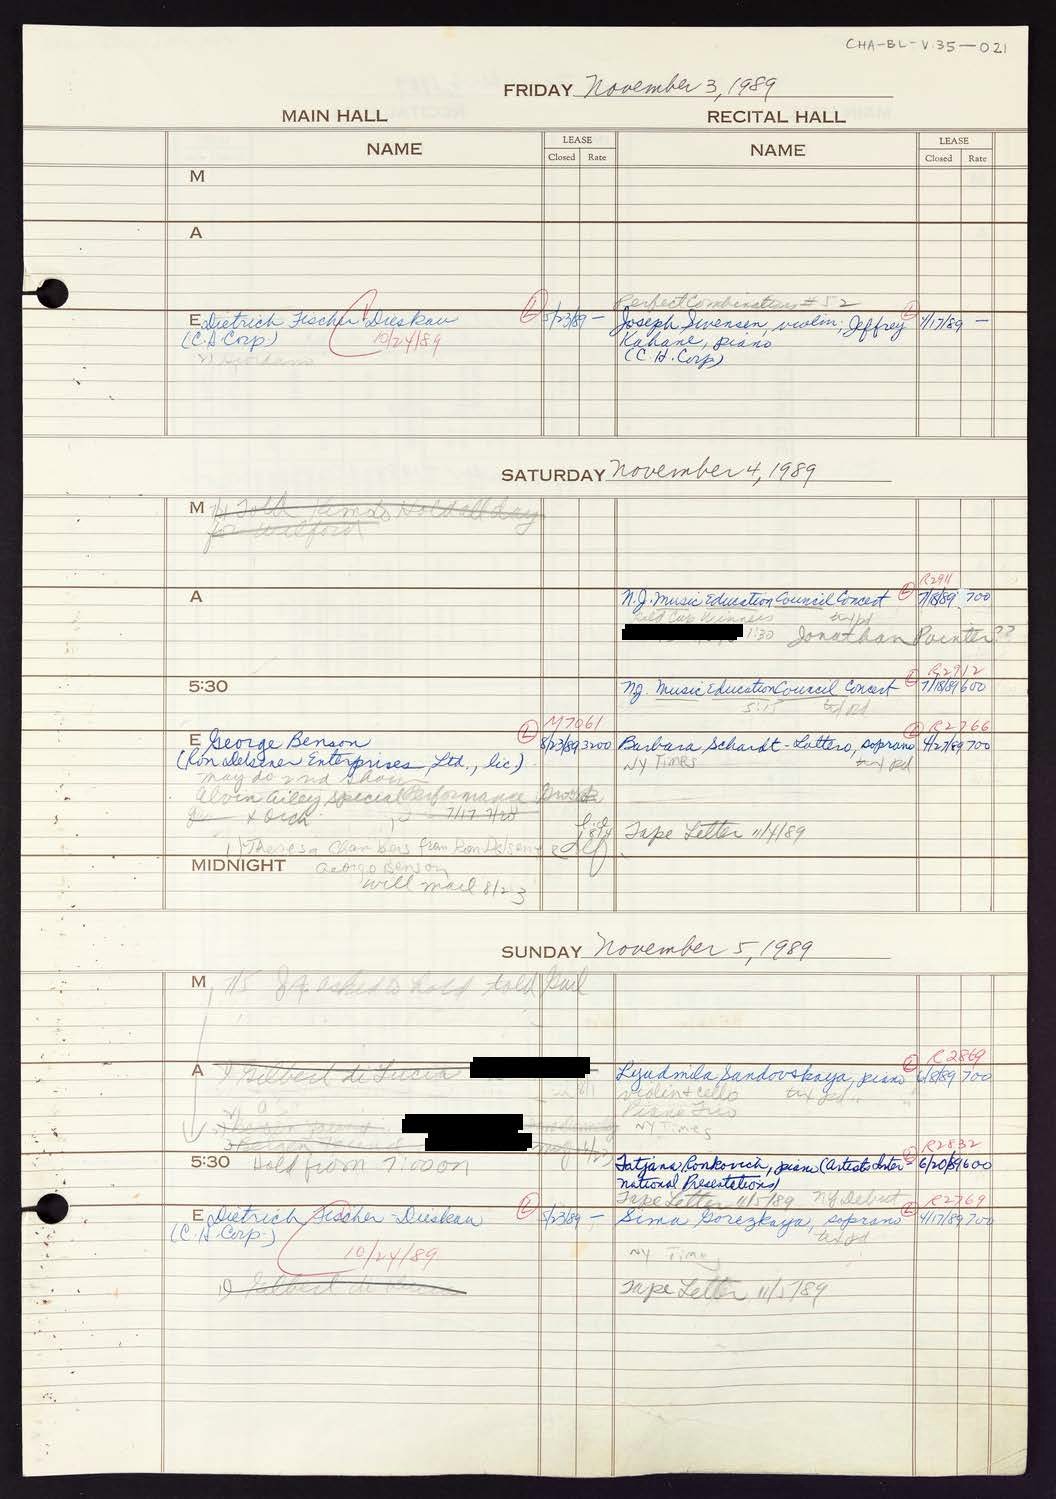 CHA-BL-V.35-021
FRIDAY November 3, 1989
MAIN HALL
RECITAL HALL
NAME
LEASE
Closed Rate
NAME
LEASE
Closed Rate
M
A
E Dietrich Fischer-Dieskau
(C.H. Corp)
10/24/89
L 5/23/89 –
Perfect Combinations #52
Joseph Swensen, violin; Jeffrey
Kahane, piano
(C.H. Corp)
L 4/17/89 –
SATURDAY November 4, 1989
M
Hold all day
for Wilford
A
N.J. Music Education Council Concert
L R2911
7/18/89 700
Gold Cup Winners tax pd
1:30 Jonathan Pointer??
5:30
NJ. Music Education Council Concert
L R2912
7/18/89 600
5:15 tax pd
E George Benson
(Ron Delsener Enterprises, Ltd., lic)
L M7061
8/23/89 3200
may do 2nd show
Alvin Ailey special Performance
& Orch 7/17 7/28
1) Theresa Chambers from Ron Delsener
Barbara Schardt-Lattero, soprano
L R2766
4/27/89 700
NY Times tax pd
Tape Letter 11/4/89
MIDNIGHT George Benson
will mail 8/23
SUNDAY November 5, 1989
M 7/5 asked to hold told Gail
A Gilbert di Lucia
Lyudmila Sandovskaya, piano
L R2869
6/8/89 700
violin & cello tax pd
Piano Trio
NY Times
5:30 Hold from 7:00 on
Tatjana Ronkovich, piano (Artists Inter-
national Presentations)
L R2832
6/20/89 600
Tape Letter 11/5/89 NY Debut
E Dietrich Fischer-Dieskau
(C.H. Corp.)
L 5/23/89 –
10/24/89
Sima Gorezkaya, soprano
L R2769
4/17/89 700
tax pd
NY Times
Tape Letter 11/5/89